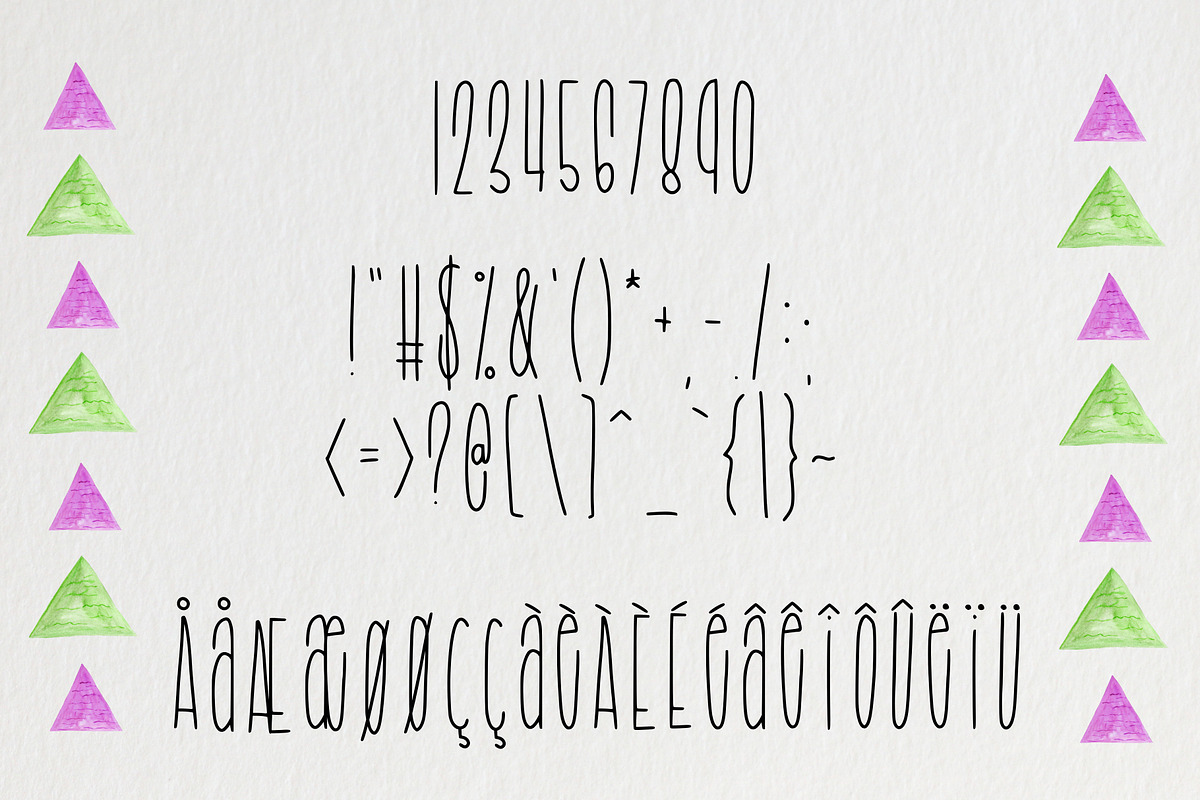 1234567890
!"#$%&'()*+,-./:;
<=>?@[\]^_`{|}~
ÅåÆæøØÇçàèÀÈÉéâêîôÛëïÜ